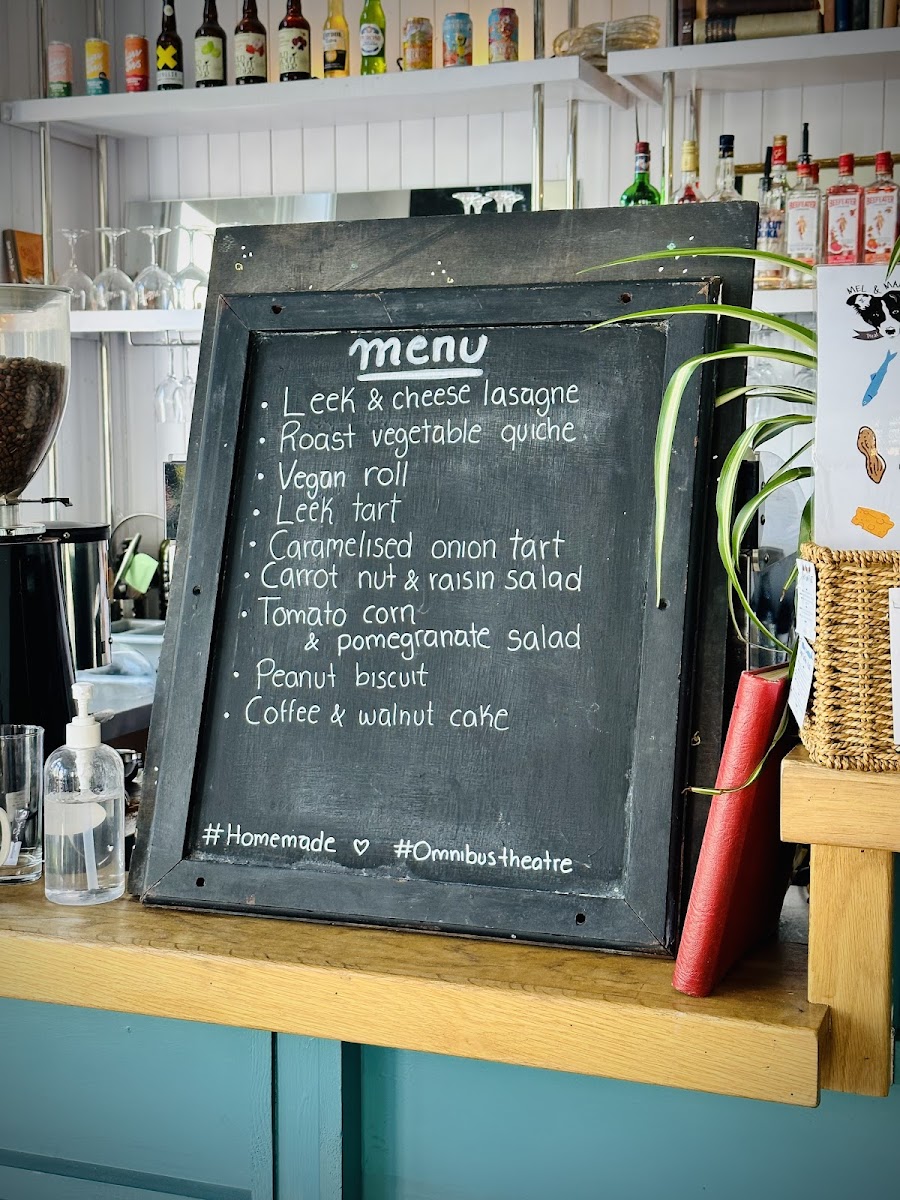 menu
• Leek & cheese lasagne
• Roast vegetable quiche
• Vegan roll
• Leek tart
• Caramelised onion tart
• Carrot nut & raisin salad
• Tomato corn
& pomegranate salad
• Peanut biscuit
• Coffee & walnut cake
#Homemade ♡ #Omnibustheatre
BEEFEATER
BEEFEATER
BEEFEATER
MEL &